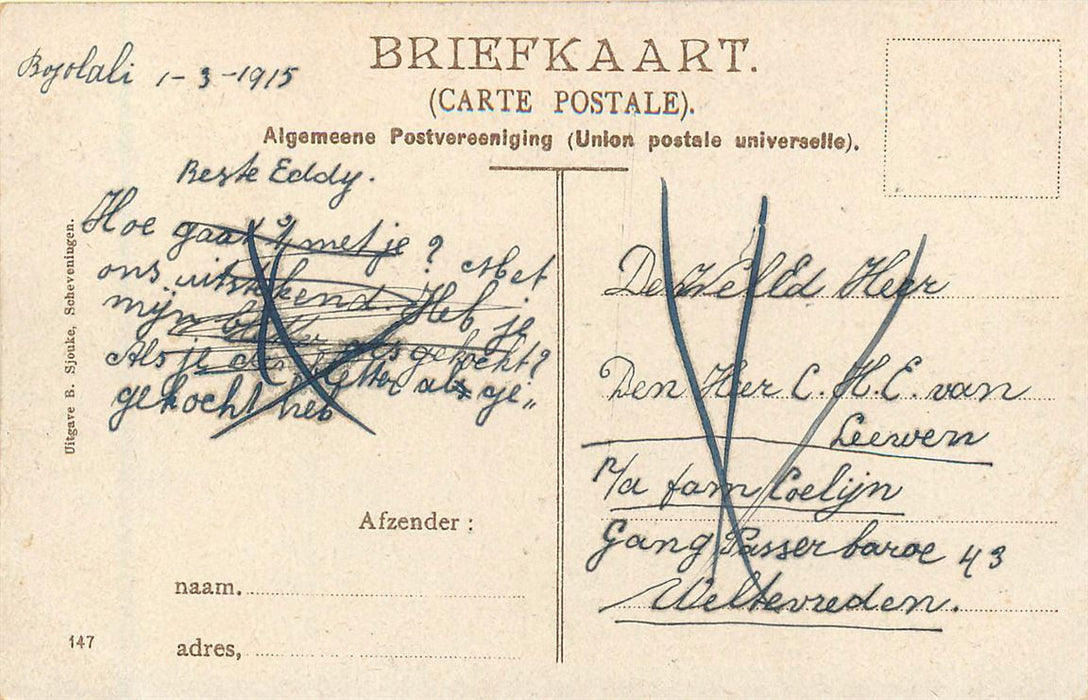 Bojolali 1-3-1915
BRIEFKAART.
(CARTE POSTALE).
Algemeene Postvereeniging (Union postale universelle).
Beste Eddy.
Hoe gaat 't met je? Met
ons uitstekend. Heb je
mijn gekocht?
Als je als ge„
gekocht heb
Uitgave B. Sjouke, Scheveningen.
Afzender:
naam.
adres,
147
De WelEd Heer
Den Heer C. H. E. van
Leewen
p/a fam Coelijn
Gang Passer baroe 43
Weltevreden.